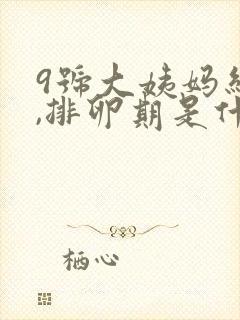 9號大姨妈
,排卵期是什
栖心